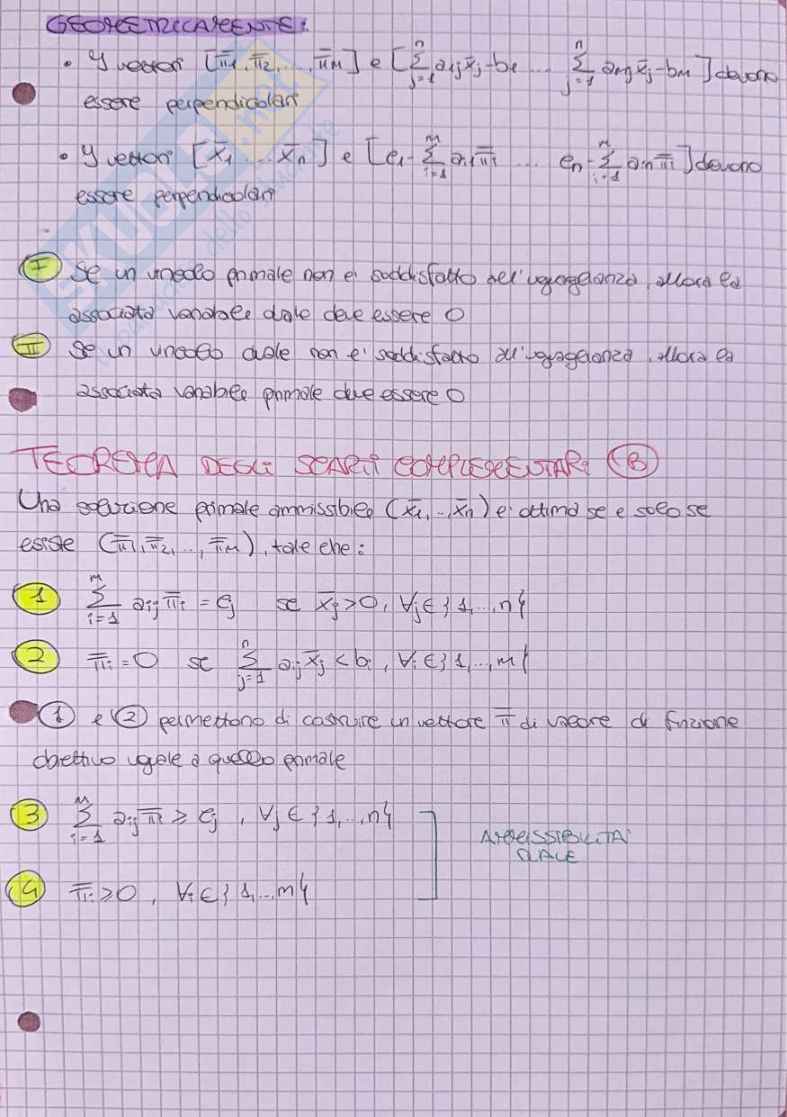 GEOMETRICAMENTE:
• I vettori [π̅1, π̅2, ..., π̅m] e [∑_{j=1}^{n} a1j x̅j - b1 ... ∑_{j=1}^{n} amj x̅j - bm] devono
essere perpendicolari
• I vettori [x̅1 ... x̅n] e [c1 - ∑_{i=1}^{m} ai1 π̅i ... cn - ∑_{i=1}^{m} ain π̅i] devono
essere perpendicolari
I Se un vincolo primale non è soddisfatto all'uguaglianza, allora la
associata variabile duale deve essere 0
II Se un vincolo duale non è soddisfatto all'uguaglianza, allora la
associata variabile primale deve essere 0
TEOREMA DEGLI SCARTI COMPLEMENTARI B
Una soluzione primale ammissibile (x̅1, .., x̅n) è ottima se e solo se
esiste (π̅1, π̅2, .., π̅m), tale che:
1 ∑_{i=1}^{m} aij π̅i = cj se x̅j > 0, ∀j ∈ {1, .., n}
2 π̅i = 0 se ∑_{j=1}^{n} aij x̅j < bi, ∀i ∈ {1, .., m}
1 e 2 permettono di costruire un vettore π̅ di valore di funzione
obiettivo uguale a quello primale
3 ∑_{i=1}^{m} aij π̅i ≥ cj, ∀j ∈ {1, .., n}
AMMISSIBILITA'
DUALE
4 π̅i ≥ 0, ∀i ∈ {1, .., m}